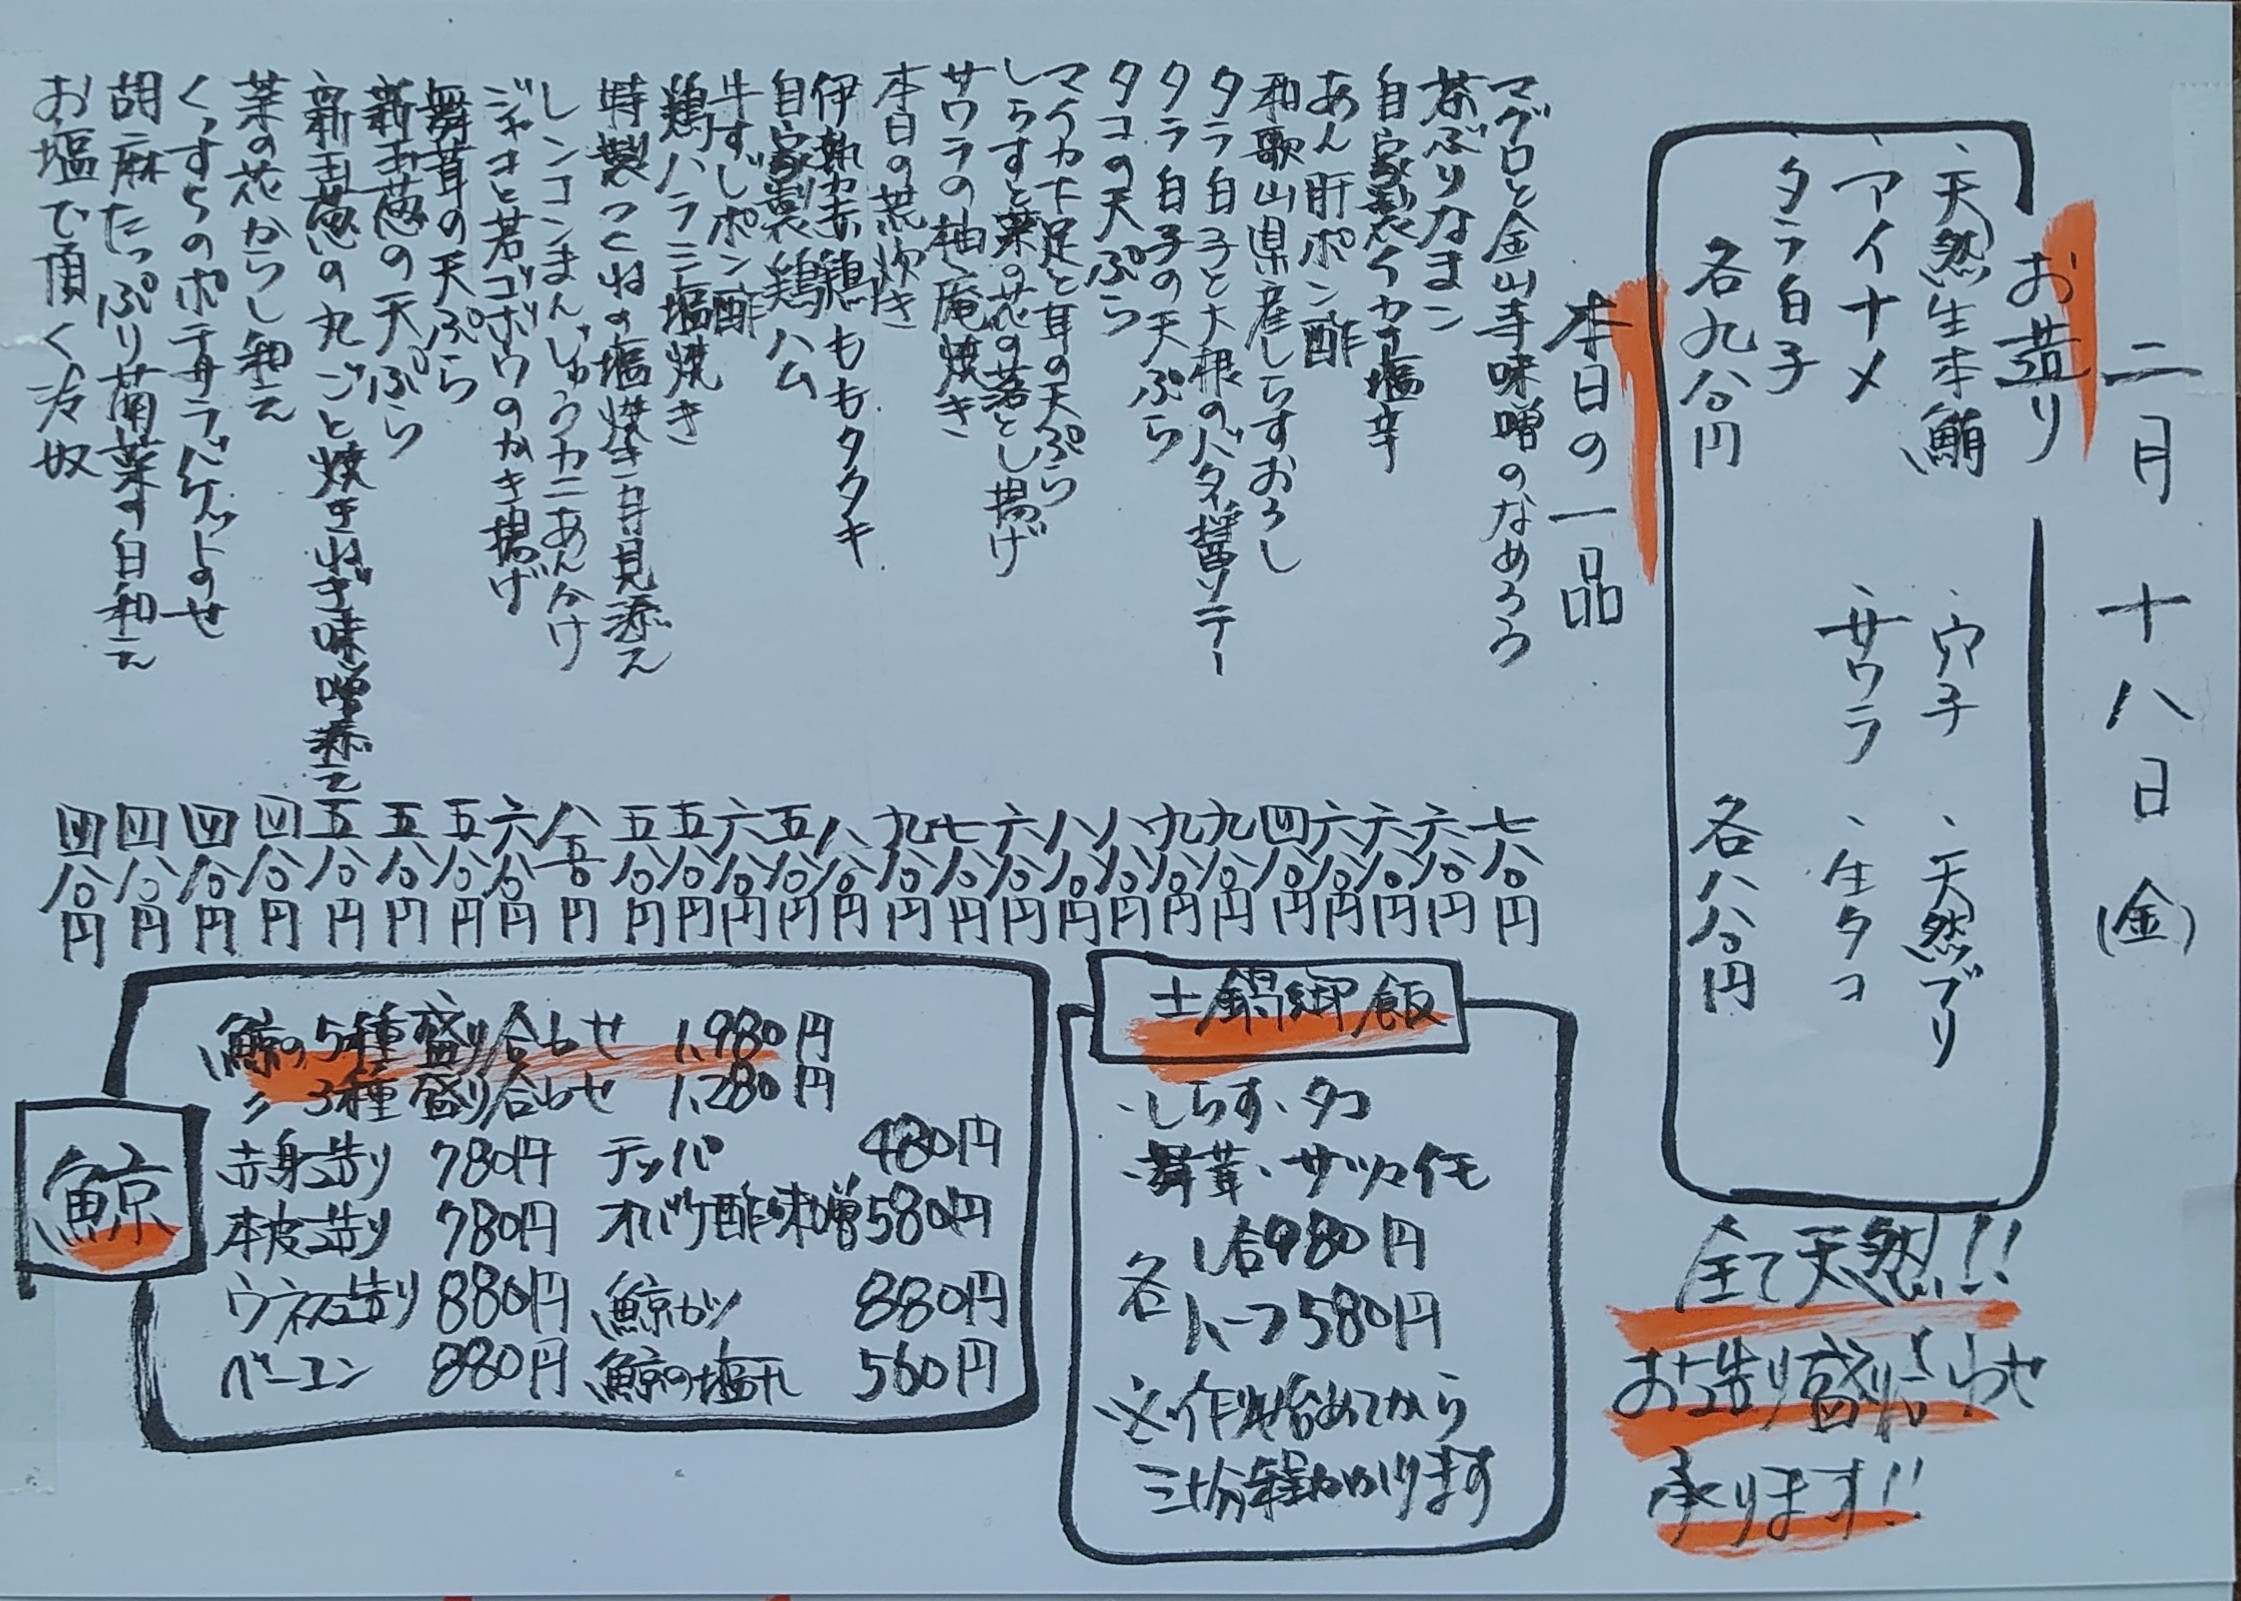 二月十八日(金)
お造り
、天然生本鮪 、穴子 、天然ブリ
、アイナメ 、サワラ 、生タコ
、タラ白子
各九八〇円 各八八〇円
全て天然!!
お造り盛り合わせ
承ります!!
本日の一品
マグロと金山寺味噌のなめろう 七八〇円
茶ぶりなまこ 六八〇円
自家製イカの塩辛 六八〇円
あん肝ポン酢 六八〇円
和歌山県産しらすおろし 四八〇円
タラ白子と大根のバター醤油ソテー 九八〇円
タラ白子の天ぷら 九八〇円
タコの天ぷら 八八〇円
マイカ下足と耳の天ぷら 八八〇円
しらすと菜の花の落とし揚げ 六八〇円
サワラの柚庵焼き 七八〇円
本日の荒炊き 九八〇円
伊勢赤鶏ももタタキ 八八〇円
自家製鶏ハム 五八〇円
牛すじポン酢 六八〇円
鶏ハラミ塩焼き 五八〇円
特製つくねの塩焼き月見添え 五八〇円
レンコンまんじゅうカニあんかけ 八五〇円
ジャコと若ゴボウのかき揚げ 六八〇円
舞茸の天ぷら 五八〇円
新玉葱の天ぷら 五八〇円
新玉葱の丸ごと焼きねぎ味噌添え 五八〇円
菜の花からし和え 四八〇円
くっすちのポテサラバゲットのせ 四八〇円
胡麻たっぷり菊菜の白和え 四八〇円
お塩で頂く冷奴 四八〇円
土鍋御飯
、しらす、タコ
、舞茸、サツマイモ
各 1合980円
ハーフ580円
※作り始めてから
三十分程かかります
鯨
鯨の5種盛り合わせ 1,980円
〃 3種盛り合わせ 1,280円
赤身造り 780円 テッパ 480円
本皮造り 780円 オバケ酢味噌 580円
ウネス造り 880円 鯨カツ 880円
ベーコン 880円 鯨の塩タレ 560円